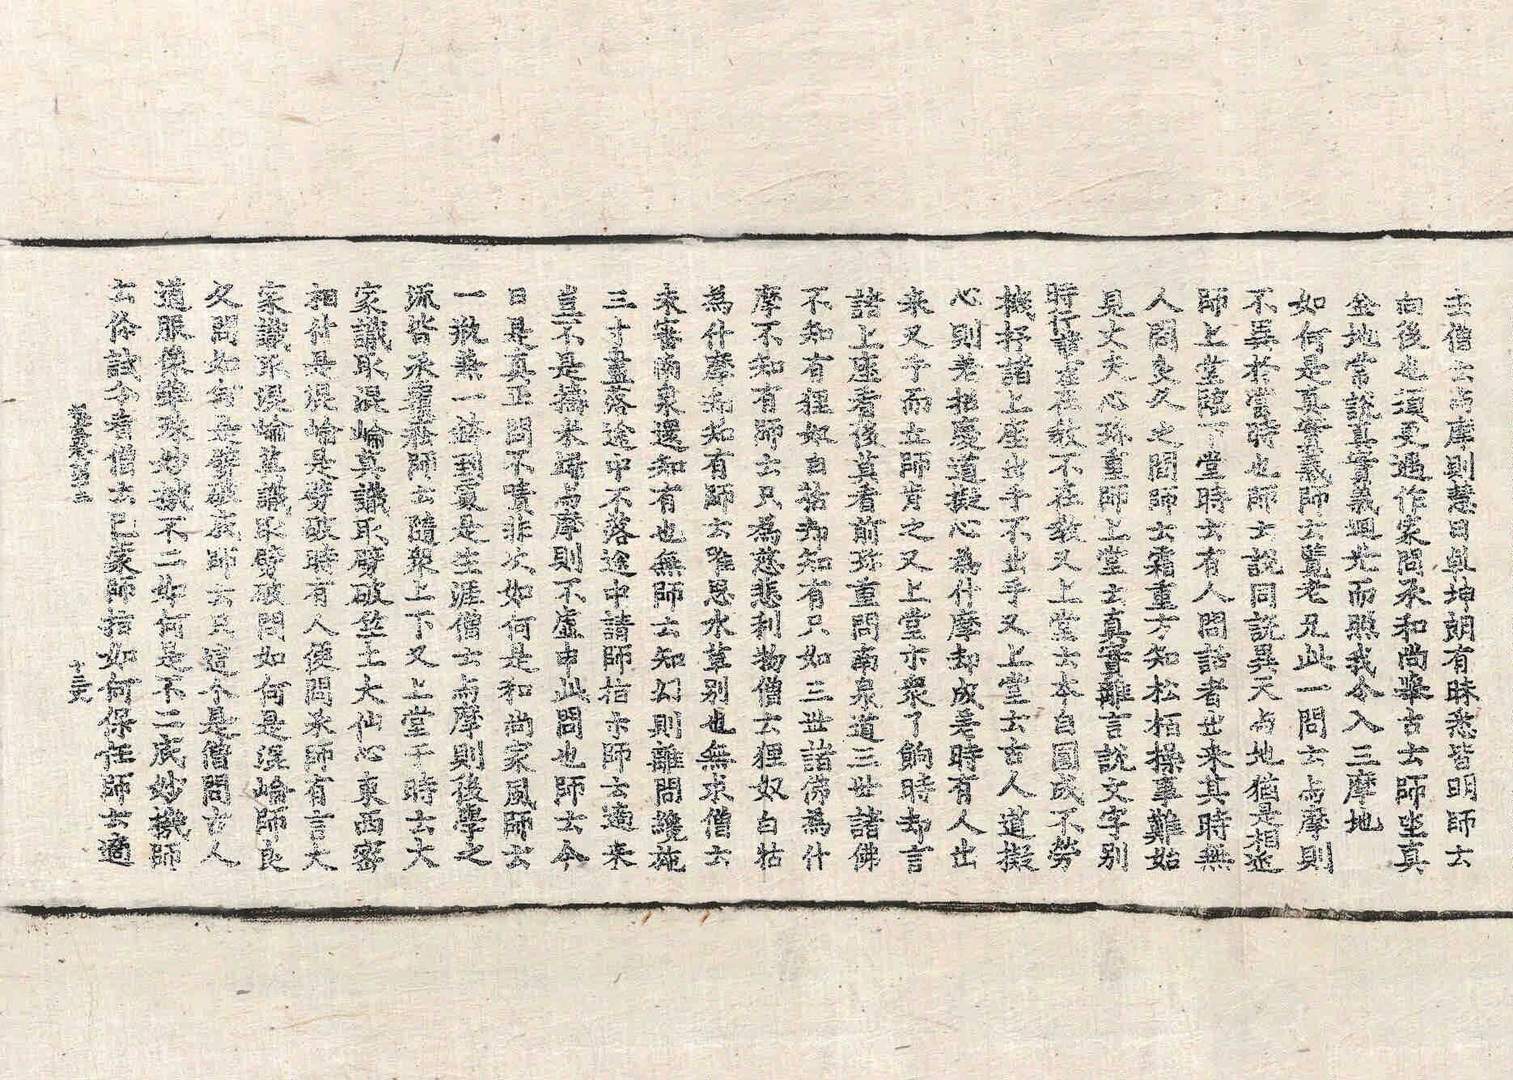 去僧云與摩則慧日乹坤朗有昧悉皆明師云
向後也須更遇作家問承和尚舉古云師坐真
金地常說真實義迴光而照我令入三摩地
如何是真實義師云覽老兄此一問云与摩則
不弄於當時也師云說同說異天与地猶是相近
師上堂臨下堂時云有人問話者出来其時無
人問良久之間師云霜重方知松栢操事難始
見丈夫心珎重師上堂云真實離言說文字別
時行諸法在教不在教又上堂云本自圓成不勞
機杼諸上座出手不出手又上堂云古人道擬
心則差招慶道擬心為什摩却成差時有人出
来叉手而立師肯之又上堂示衆了餉時却言
諸上座看後莫看前珎重問南泉道三世諸佛
不知有狸奴白牯却知有只如三世諸佛為什
摩不知有師云只為慈悲利物僧云狸奴白牯
為什摩却知有師云唯思水草别也無求僧云
未審南泉還知有也無師云知幻則離問纔施
三寸盡落途中不落途中請師指示師云適来
豈不是擣米婦与摩則不虛申此問也師云今
日是真正問不嘖非次如何是和尚家風師云
一瓶兼一鉢到處是生涯僧云与摩則後學之
流皆承 師云隨衆上下又上堂于時云大
家識取混崙莫識取劈破竺土大仙心東西密
相付是混崙是劈破時有人便問承師有言大
家識取混崙莫識取劈破問如何是混崙師良
久問如何是劈破底師云只這个是僧問古人
道服像雖殊妙機不二如何是不二底妙機師
云你試分看僧云已蒙師指如何保任師云適
十三